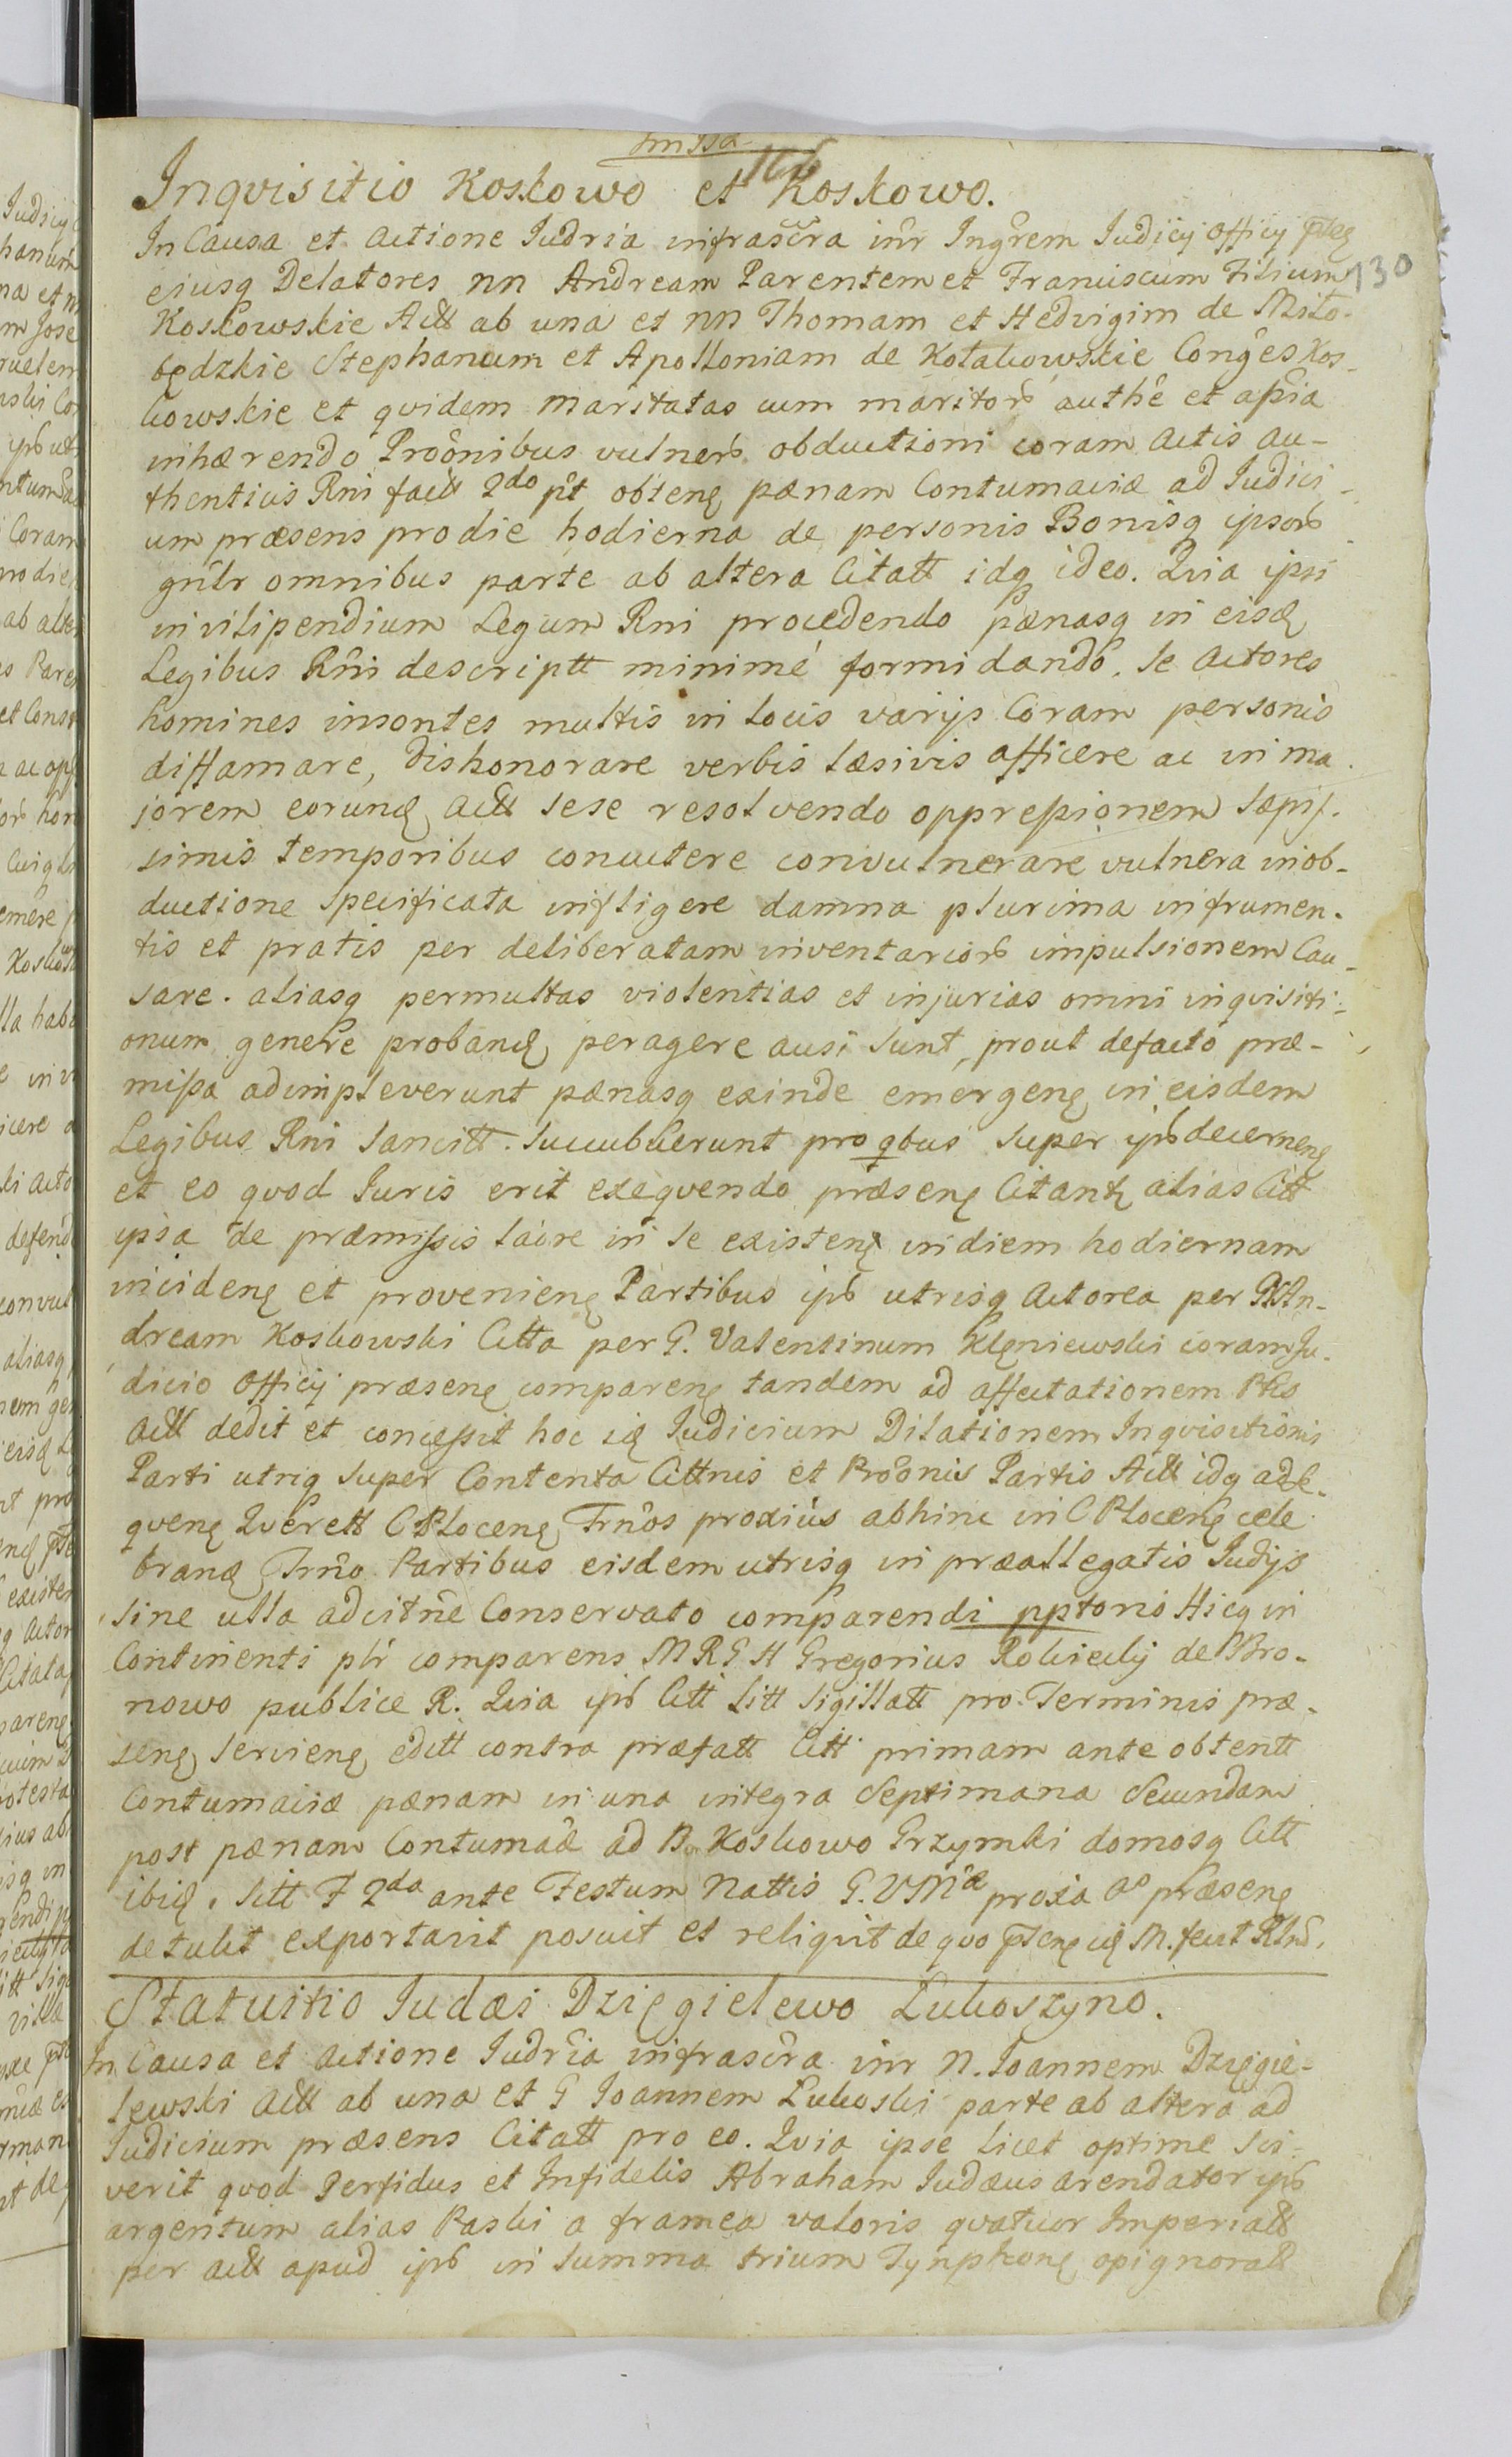 missa
106
Inqvisitio Koskowo et Koskowo.
130
In Causa et Actione Iudria infrascra inr Ingrem Iudicij Officij pteg
eiusq Delatores nn Andream Parentem et Franciscum Filium
Koskowskie Actt ab una et nn Thomam et Hedvigim de Miło-
będzkie Stephanum et Apolloniam de Kołakowskie Conges Kos-
kowskie et qvidem maritatas cum maritor authe et assia
inhærendo Proonibus vulner obductioni coram Actis Au-
thenticis Rni fact 2do pt obteng pænam Contumaciæ ad Iudici-
um præsens pro die hodierna de personis Bonisq ipsor
gnlr omnibus parte ab altera Citatt idq ideo. Qvia ipsi
in vilipendium Legum Rni procedendo pænasq in eisd
Legibus Rni descriptt minimé formidando. se Actores
homines insontes multis in locis varijs Coram personis
diffamare, dishonorare verbis læsivis afficere ac in ma-
jorem eorund Actt sese resolvendo oppressionem sæpis-
simis temporibus concutere convulnerare vulnera in ob-
ductione specificata infligere damna plurima in frumen-
tis et pratis per deliberatam inventarior impulsionem Cau-
sare. aliasq permultas violentias et injurias omni inqvisiti-
onum genere proband peragere ausi sunt, prout defacto præ-
missa adimpleverunt pænasq exinde emergeng in eisdem
Legibus Rni sancitt. succubuerunt pro qbus super ips decerneng
et eo qvod Iuris erit exeqvendo præseng Citant alias Citt
ipsa de præmissis lacre in se existeng in diem hodiernam
incideng et provenieng Partibus ips utrisq Actorea per G An-
dream Koskowski Citta per G. Valentinum Kleniewski coram Iu-
dicio Officij præseng compareng tandem ad affectationem Ptis
Actt dedit et concessit hoc id Iudicium Dilationem Inqvisitionis
Parti utriq super Contenta Cittnis et Proonis Partis Actt idq ad se-
qveng Qverett C Ploceng Trnos proxius abhinc in C Ploceng cele-
brand Trno Partibus eisdem utrisq in præallegatis Iudijs
sine ulla adcitne Conservato comparendi pptorio Hicq in
Continenti plr comparens M R G H Gregorius Rokicki de Bro-
nowo publice R. Qvia ips Citt litt sigillatt pro Terminis præ-
seng servieng editt contra præfatt Citt primam ante obtentt
Contumaciæ pænam in una integra Septimana Secundam
post pænam Contumaciæ ad B Koskowo Grzymki domosq Citt
ibid. sitt F 2da ante Festum Nattis G. VMæ proxia Ao præseng
detulit exportavit posuit et reliqvit de qvo pteng id M. fecit Rlno.
Statuitio Iudæi Dzięgielewo Lukoszyno.
In Causa et Actione Iudria infrascra inr N. Joannem Dzięgie-
lewski Actt ab una et G Joannem Lukoski parte ab altera ad
Iudicium præsens Citatt pro eo. Qvia ipse licet optime sci-
verit qvod Perfidus et Infidelis Abraham Iudæus arendator ips
argentum alias Paski a framea valoris qvatuor Imperiatt
per Actt apud ips in summa trium Tynphong opignoratt